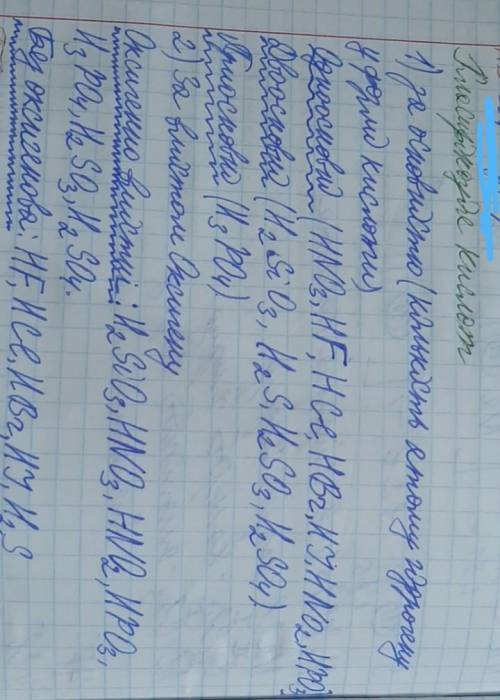 Класифікація кислот
1) за основністю (кількість атому гідрогену
у формі кислоти)
Одноосновні (HNO₃, HF, HCl, HBr, HJ HNO₂, HPO₃
Двоосновні (H₂SiO₃, H₂S, H₂SO₃, H₂SO₄)
Триосновні (H₃PO₄)
2) За вмістом Оксигену
Оксигено вмістній: H₂SiO₃, HNO₃, HNO₂, HPO₃,
H₃PO₄, H₂SO₃, H₂SO₄.
Без оксигенові: HF, HCl, HBr, HJ, H₂S